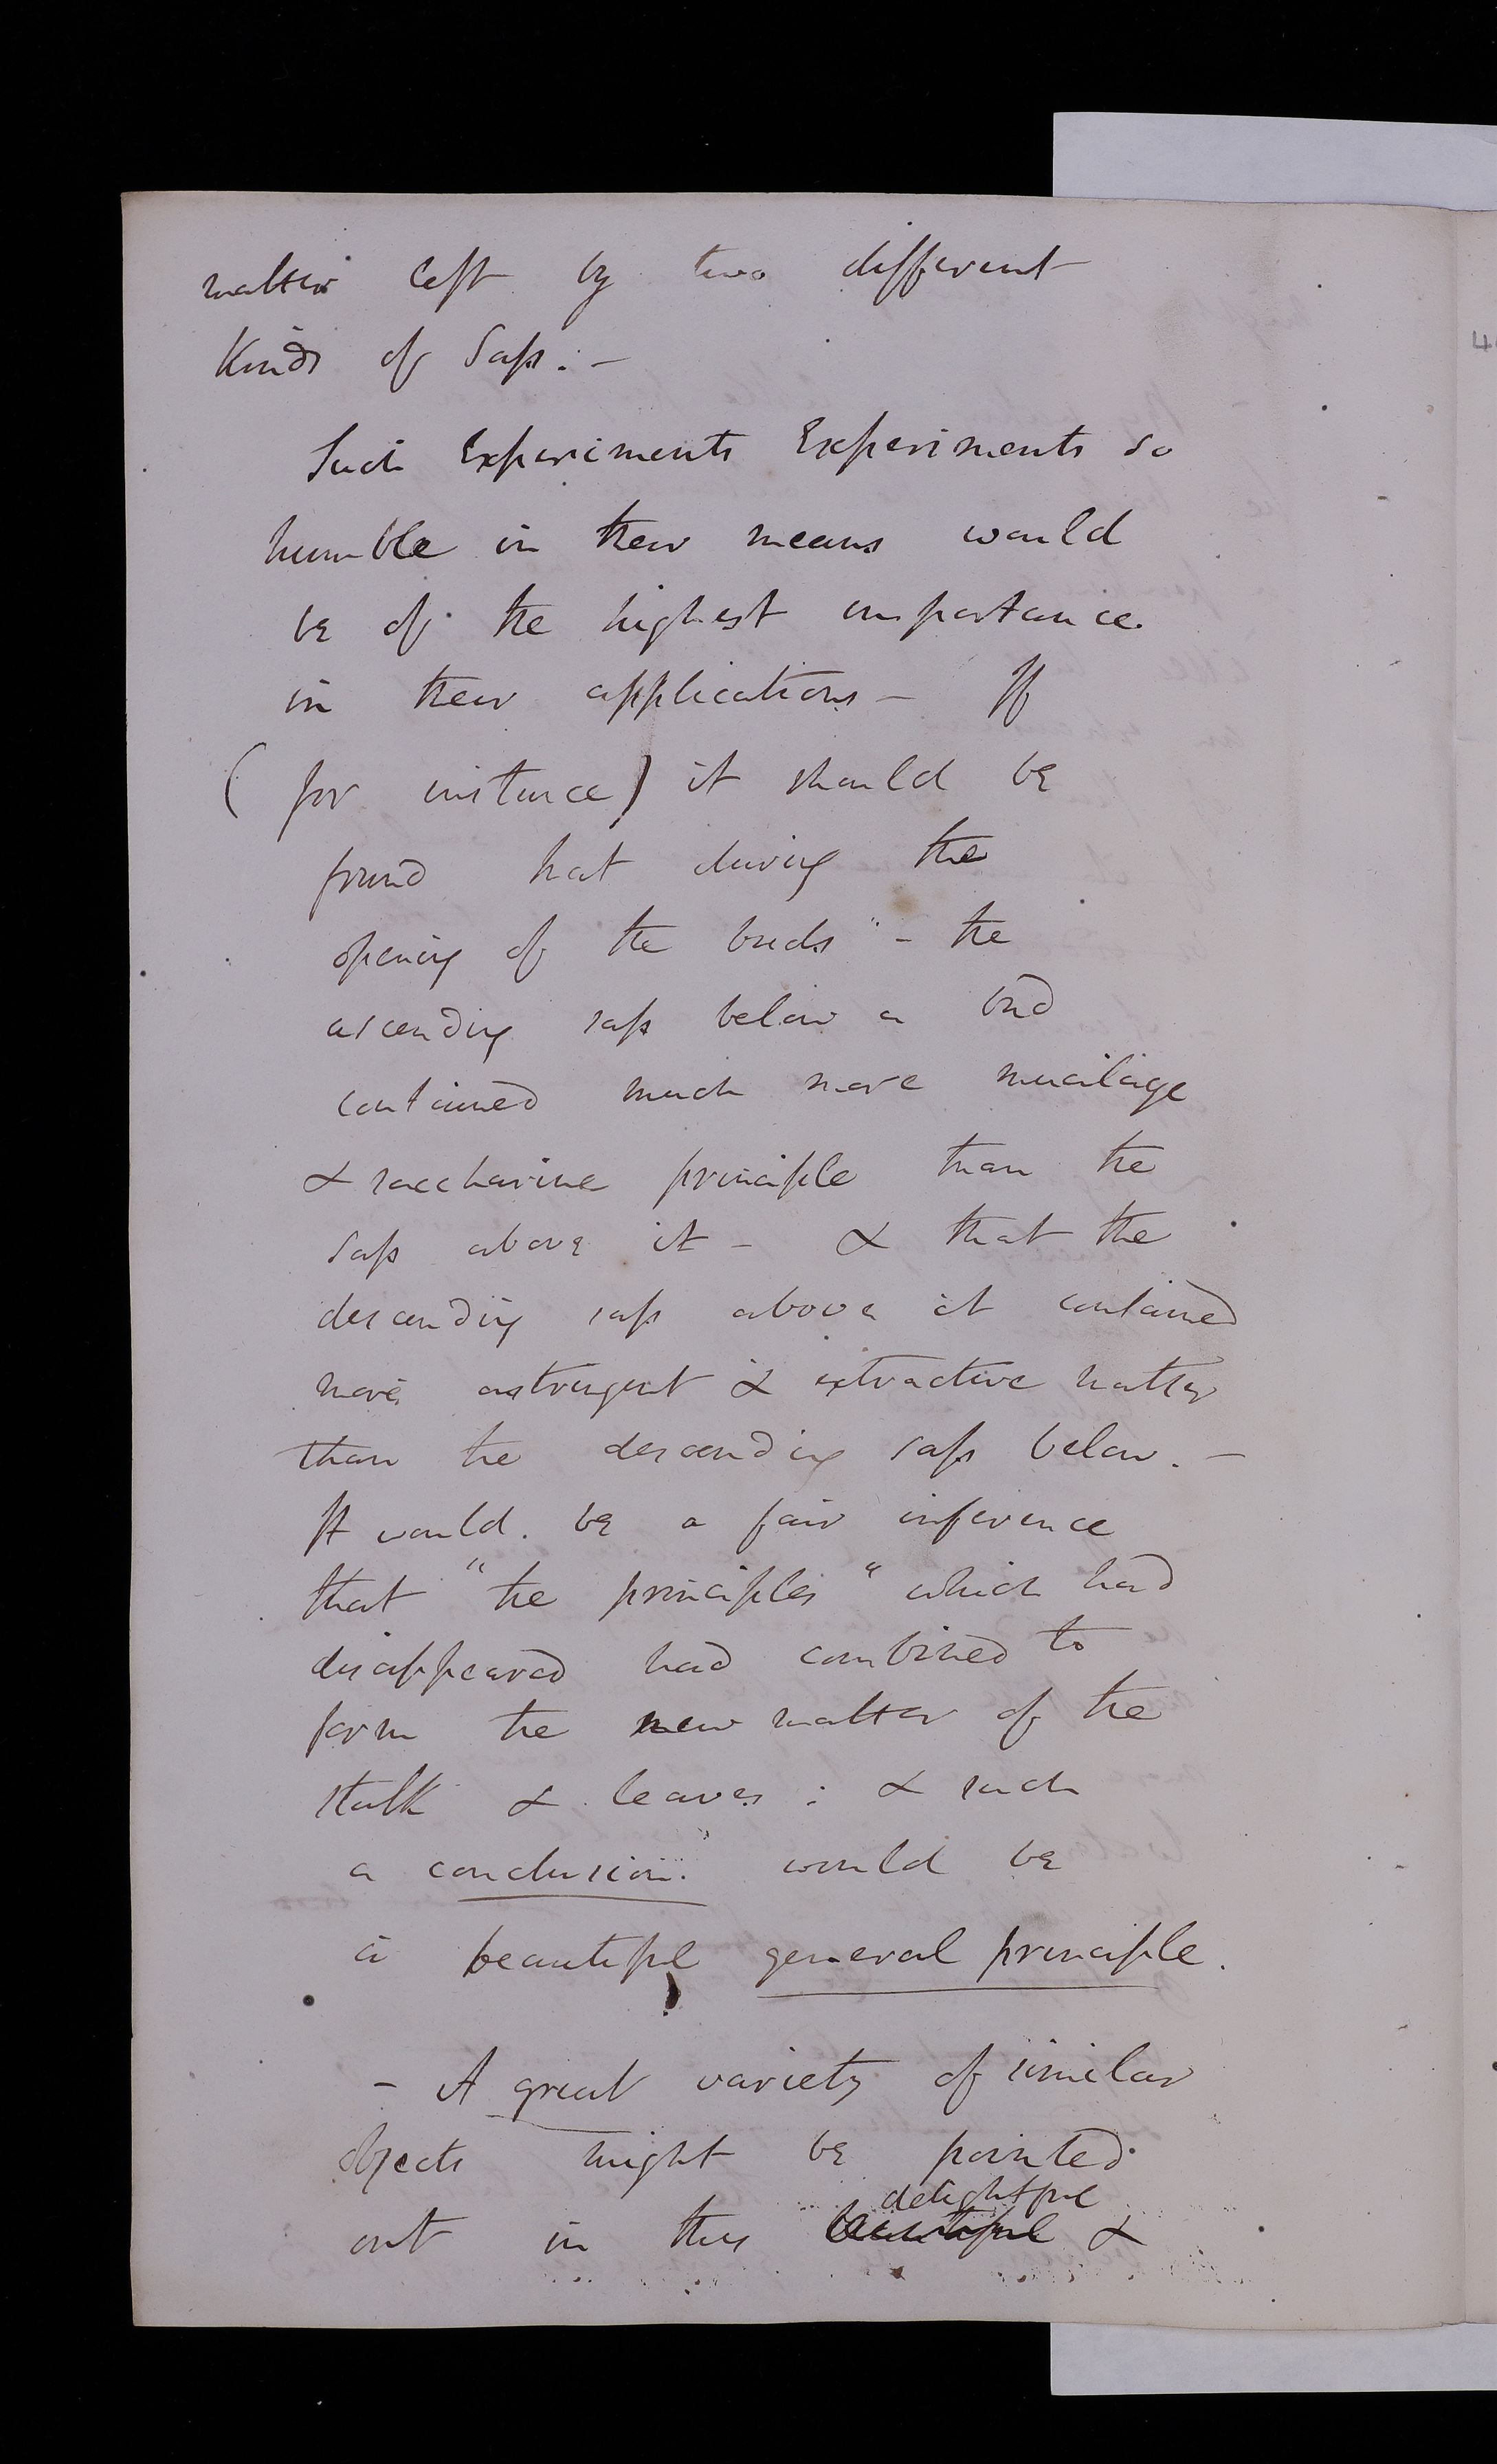 matter left by two different
Kinds of Sap: -
Such Experiments Experiments so
humble in their means would
be of the highest importance
in their applications - If
(for instance) it should be
found that during the
opening of the buds" - the
ascending sap below a bud
contained much more mucilage
& saccharine principle than the
sap above it - & that the
descending sap above it contained
more astringent & extractive matter
than the descending sap below. -
It would be a fair inference
that "the principles" which had
disappeared had combined to
form the new matter of the
stalk & leaves: & such
a conclusion would be
a beautiful general principle.
- A great variety of similar
objects might be pointed
delightful
out in this beautiful &